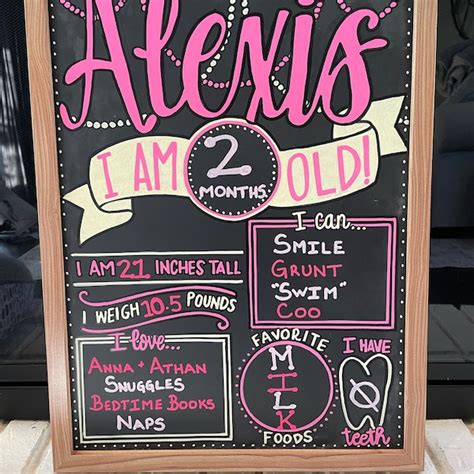 Alexis
I AM 2 MONTHS OLD!
I AM 21 INCHES TALL
I WEIGH 10.5 POUNDS
I love...
ANNA + ATHAN
SNUGGLES
BEDTIME BOOKS
NAPS
I can...
SMILE
GRUNT
"SWIM"
COO
FAVORITE
MILK
FOODS
I HAVE
Ø
teeth